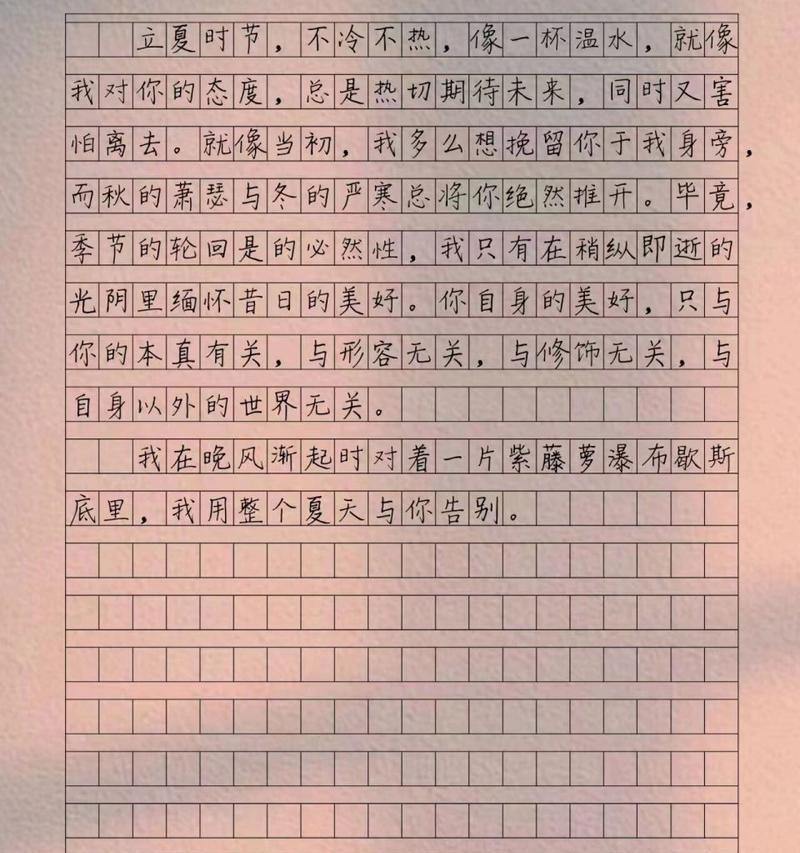 立夏时节，不冷不热，像一杯温水，就像
我对你的态度，总是热切期待未来，同时又害
怕离去。就像当初，我多么想挽留你于我身旁，
而秋的萧瑟与冬的严寒总将你绝然推开。毕竟，
季节的轮回是的必然性，我只有在稍纵即逝的
光阴里缅怀昔日的美好。你自身的美好，只与
你的本真有关，与形容无关，与修饰无关，与
自身以外的世界无关。
我在晚风渐起时对着一片紫藤萝瀑布歇斯
底里，我用整个夏天与你告别。